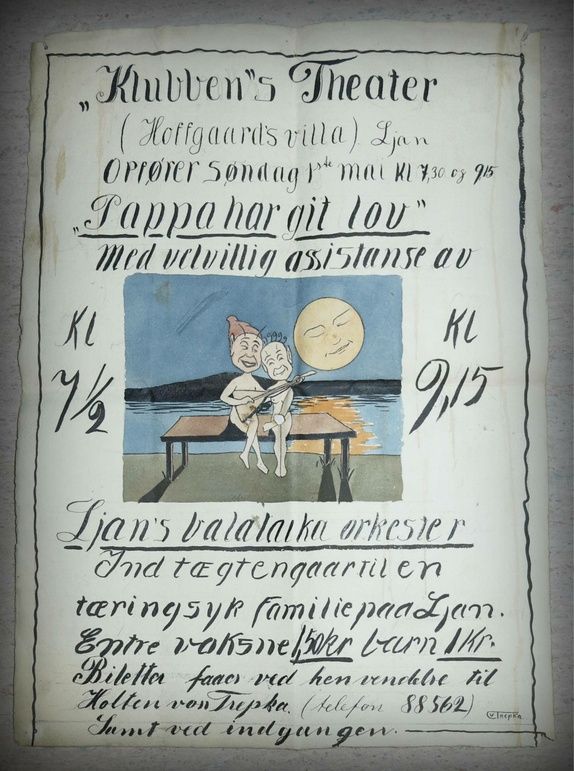 „Klubben"s Theater
(Hoffgaard's villa) Ljan
Opfører Søndag 1ste mai Kl 7,30 og 9,15
„Pappa har git lov"
Med velvillig assistanse av
Kl 7 1/2
Kl 9,15
Ljan's balalaika orkester
Indtægten gaar til en
tæringsyk familie paa Ljan.
Entre voksne 1,50 kr barn 1 Kr.
Biletter faaes ved henvendelse til
Holten von Trepka. (telefon 88562)
Samt ved indgangen.
v Trepka